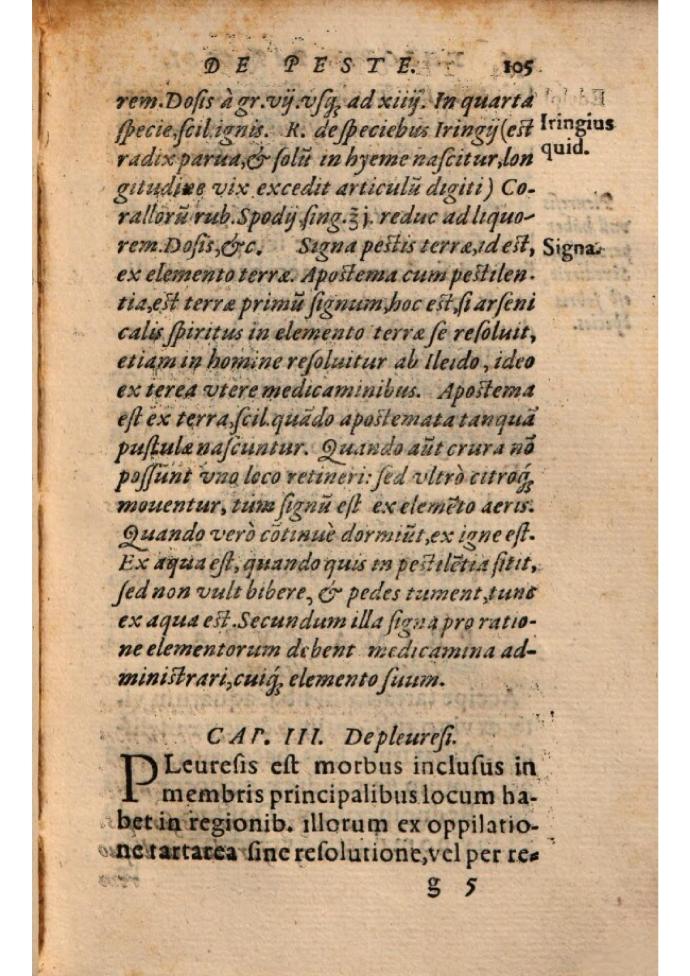 DE PESTE. 105
rem. Dosis à gr. vij. vsq; ad xiiij. In quarta
specie, scil. ignis. R. de speciebus Iringij (est
Iringius
radix parua, & solũ in hyeme nascitur, lon
quid.
gitudine vix excedit articulũ digiti) Co-
rallorũ rub. Spodij sing. ʒ j. reduc ad liquo-
rem. Dosis, &c. Signa pestis terræ, id est,
Signa.
ex elemento terræ. Apostema cum pestilen-
tia, est terræ primũ signum, hoc est, si arseni
calis spiritus in elemento terræ se resoluit,
etiam in homine resoluitur ab Ileido, ideo
ex terea vtere medicaminibus. Apostema
est ex terra, scil. quãdo apostemata tanquã
pustulæ nascuntur. Quando aũt crura nõ
possunt vno loco retineri: sed vltrò citroq;
mouentur, tum signũ est ex elemẽto aeris.
Quando verò cõtinuè dormiũt, ex igne est.
Ex aqua est, quando quis in pestilẽtia sitit,
sed non vult bibere, & pedes tument, tunc
ex aqua est. Secundum illa signa pro ratio-
ne elementorum debent medicamina ad-
ministrari, cuiq; elemento suum.
CAP. III. De pleuresi.
PLeuresis est morbus inclusus in
membris principalibus locum ha-
bet in regionib. illorum ex oppilatio-
ne tartarea sine resolutione, vel per re-
g 5